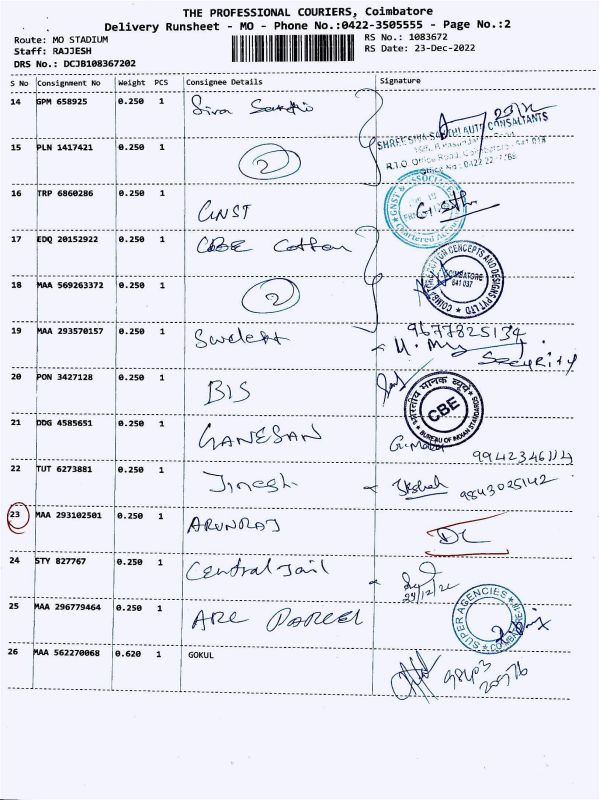 THE PROFESSIONAL COURIERS, Coimbatore
Delivery Runsheet - MO - Phone No.:0422-3505555 - Page No.:2
Route: MO STADIUM RS No.: 1083672
Staff: RAJJESH RS Date: 23-Dec-2022
DRS No.: DCJB108367202
S No Consignment No Weight PCS Consignee Details Signature
14 GPM 658925 0.250 1 Siva
SHREE SIVA SAKTHI AUTO CONSULTANTS
15 PLN 1417421 0.250 1 2
R.T.O. Office Road, Coimbatore - 641 018
16 TRP 6860286 0.250 1 GNST
GNST ASSOCIATES
Chartered Accountants
17 EDQ 20152922 0.250 1 CBE Cotton
COIMBATORE COTTON CENCEPTS AND DESIGNS PVT LTD
COIMBATORE
641 037
18 MAA 569263372 0.250 1 2
19 MAA 293570157 0.250 1 9677825134
Security
20 PON 3427128 0.250 1 BIS
भारतीय मानक ब्यूरो
CBE
BUREAU OF INDIAN STANDARDS
21 DDG 4585651 0.250 1 GANESAN
9942346114
22 TUT 6273881 0.250 1 Jinesh 9843025142
23 MAA 293102501 0.250 1 ARUNRAJ DC
24 STY 827767 0.250 1 Central Jail
24/12/22
25 MAA 296779464 0.250 1 ARC Parcel
SUPER AGENCIES
26 MAA 562270068 0.620 1 GOKUL